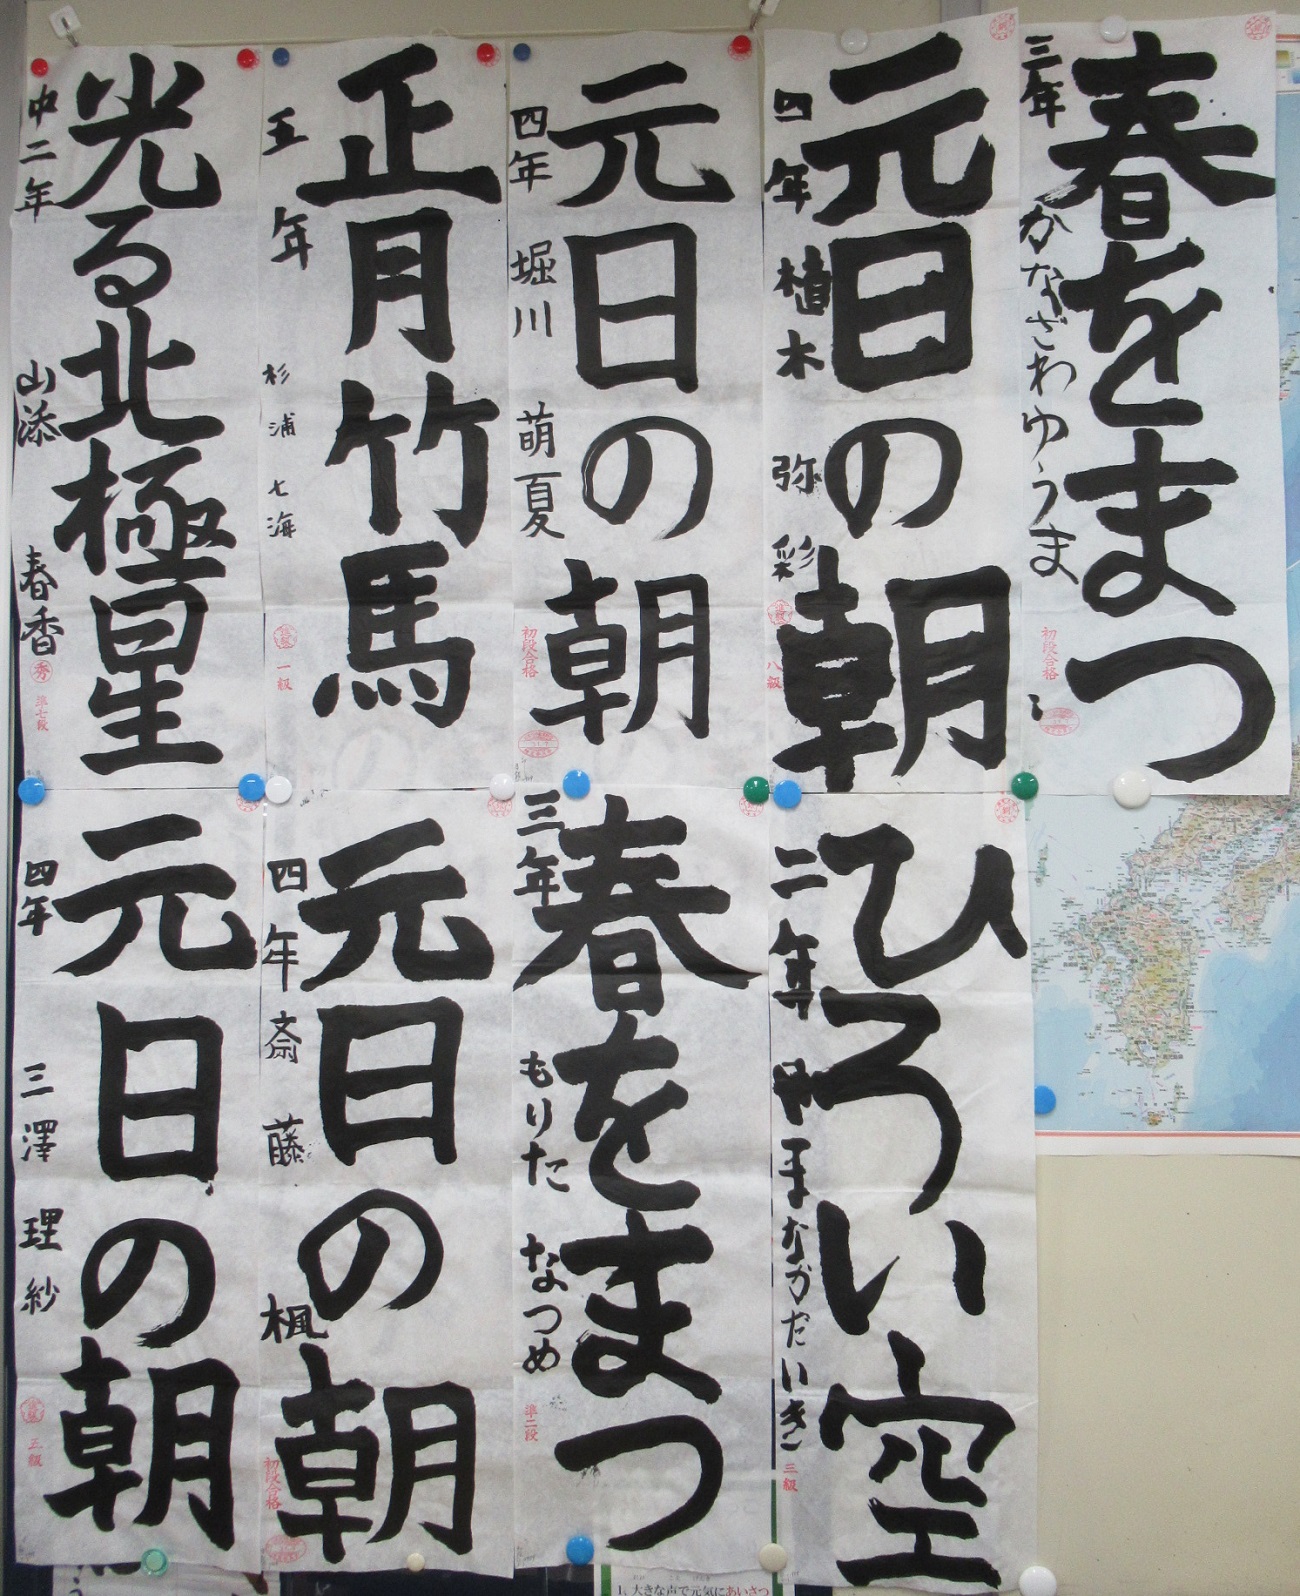 春をまつ
三年 かなざわゆうま
初段合格
元日の朝
四年 植木 弥彩
八級
元日の朝
四年 堀川 萌夏
初段合格
正月竹馬
五年 杉浦七海
一級
光る北極星
中二年 山添 春香
秀 準七段
ひろい空
二年 やまなかだいき
三級
春をまつ
三年 もりた なつめ
準二段
元日の朝
四年 斎藤 楓
初段合格
元日の朝
四年 三澤理紗
五級
1. 大きな声で元気にあいさつ